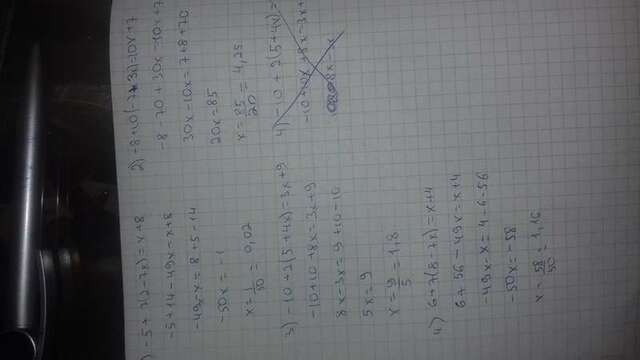 1) -5+7(2-7x)=x+8
-5+14-49x=x+8
-49x-x=8+5-14
-50x=-1
x=1/50=0,02
3) -10+2(5+4x)=3x+9
-10+10+8x=3x+9
8x-3x=9+10-10
5x=9
x=9/5=1,8
4) 6+7(8-7x)=x+4
6+56-49x=x+4
-49x-x=4-6-56
-50x=-58
x=58/50=1,16
2) -8+10(-7+3x)=10x+7
-8-70+30x=10x+7
30x-10x=7+8+70
20x=85
x=85/20=4,25
4) -10+2(5+4x)=
-10+10x+8x=3x+
8x-x